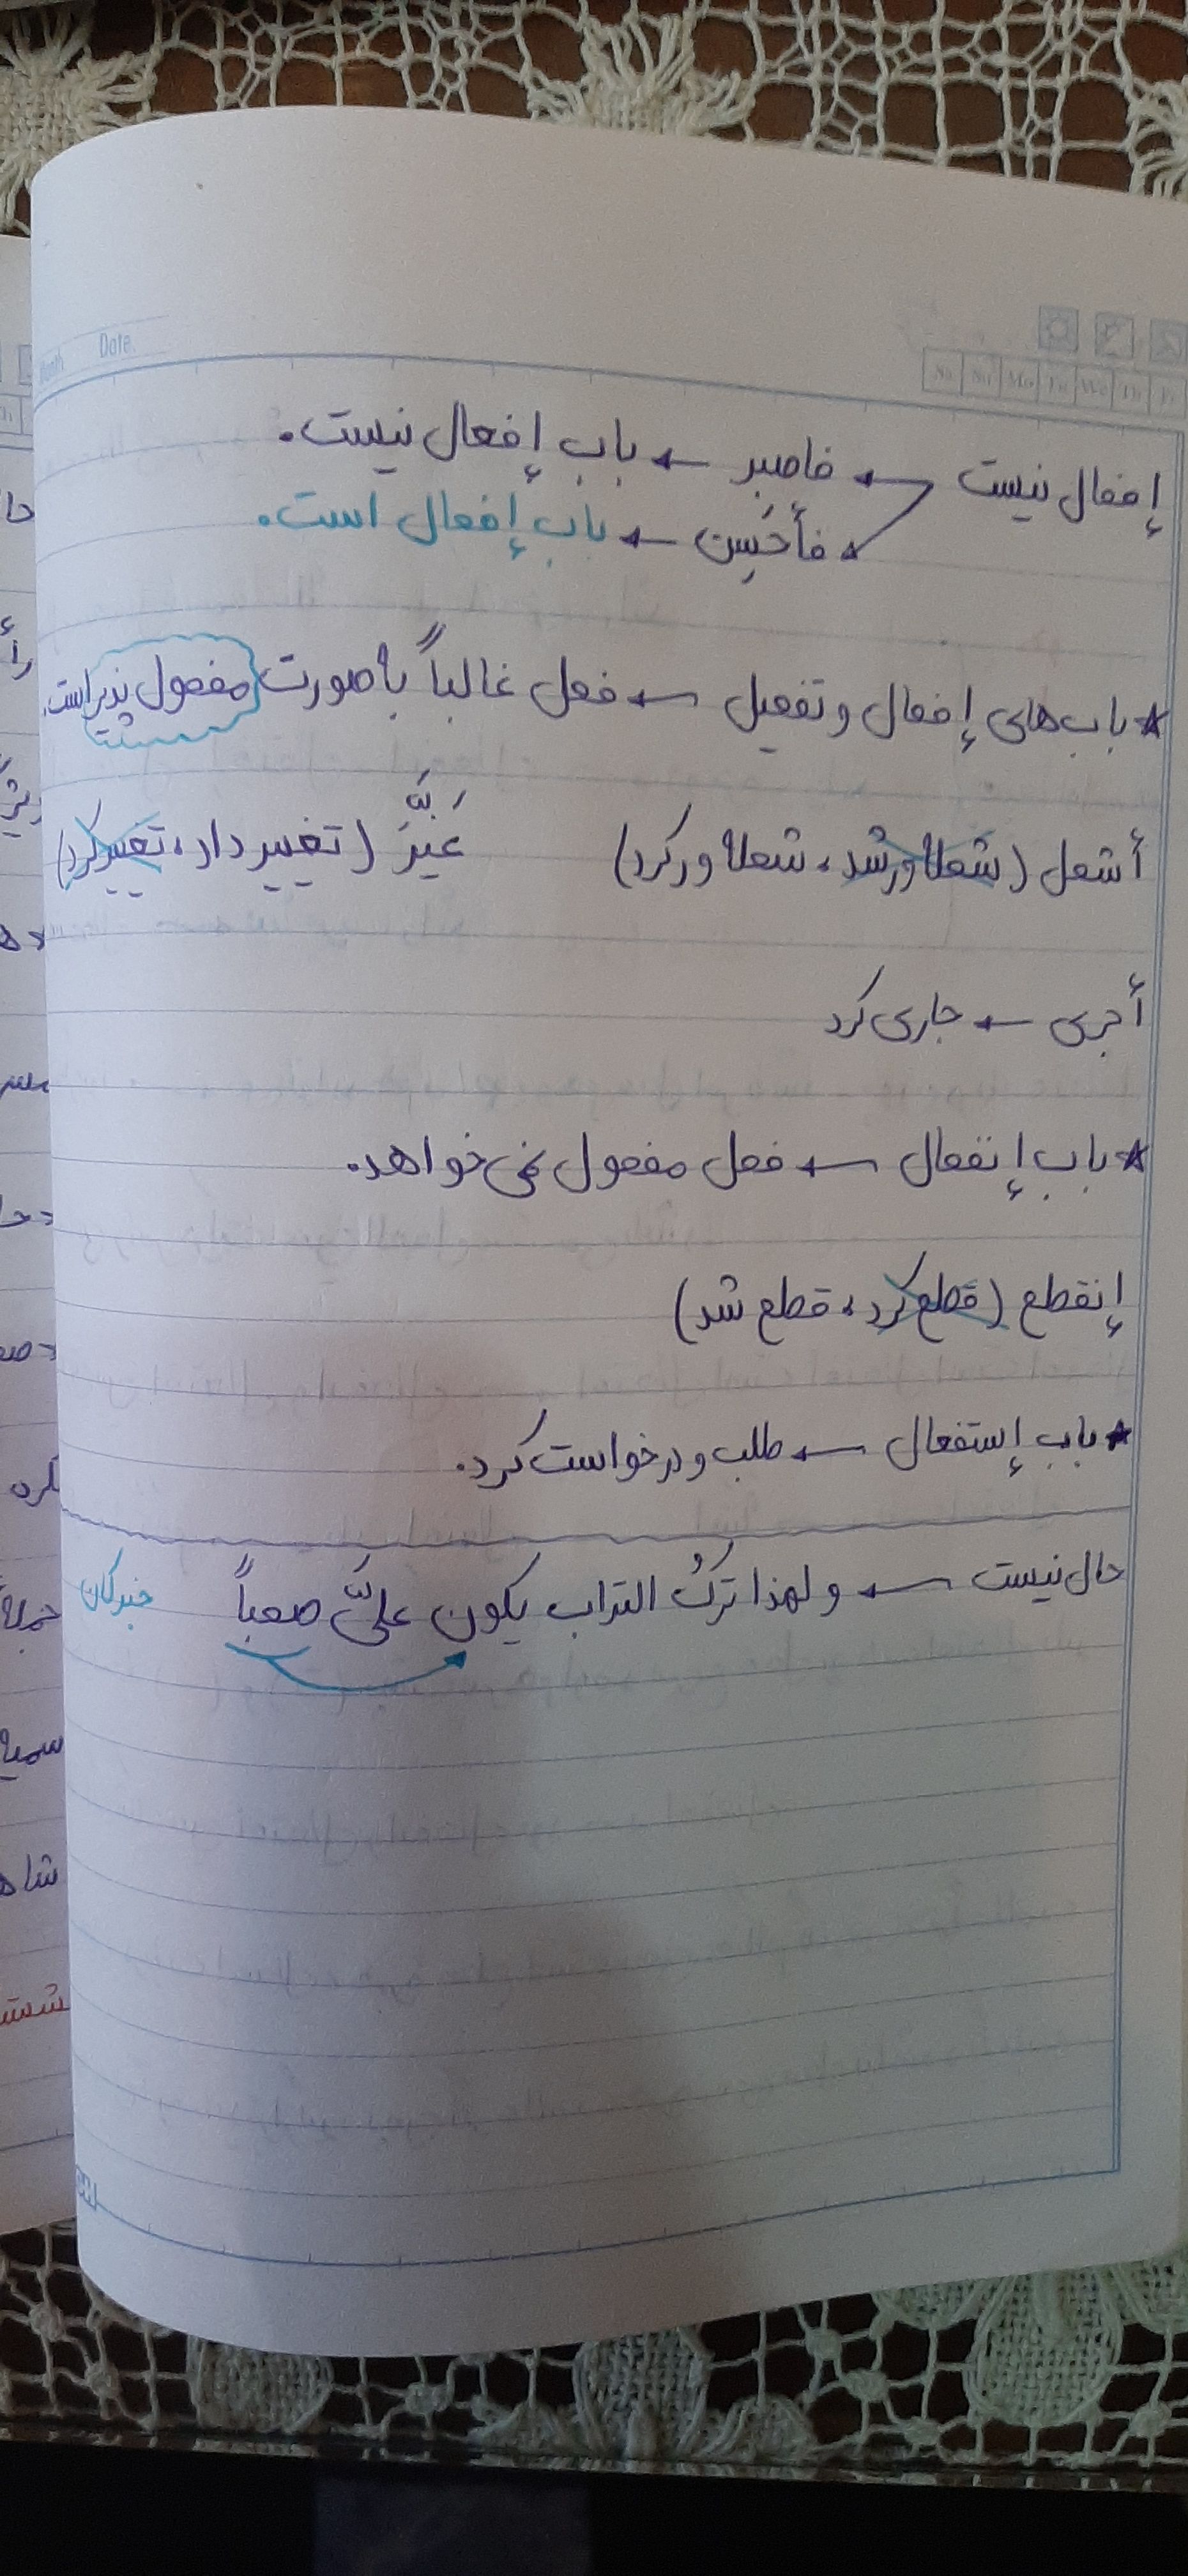 Month Date.
Sa Su Mo Tu We Th Fr
إفعال نیست ← فاصبر ← باب إفعال نیست.
← فأحسِن ← باب إفعال است.
* باب‌های إفعال و تفعیل ← فعل غالباً به صورت مفعول پذیر است.
أشعل (شعله‌ور شد، شعله‌ور کرد) غَیَّرَ (تغییر داد، تغییر کرد)
أجری ← جاری کرد
* باب إنفعال ← فعل مفعول نمی‌خواهد.
إنقطع (قطع کرد، قطع شد)
* باب إستفعال ← طلب و درخواست کرد.
حال نیست ← و لهذا ترکُ التراب یکون علیَّ صعباً خبر کان